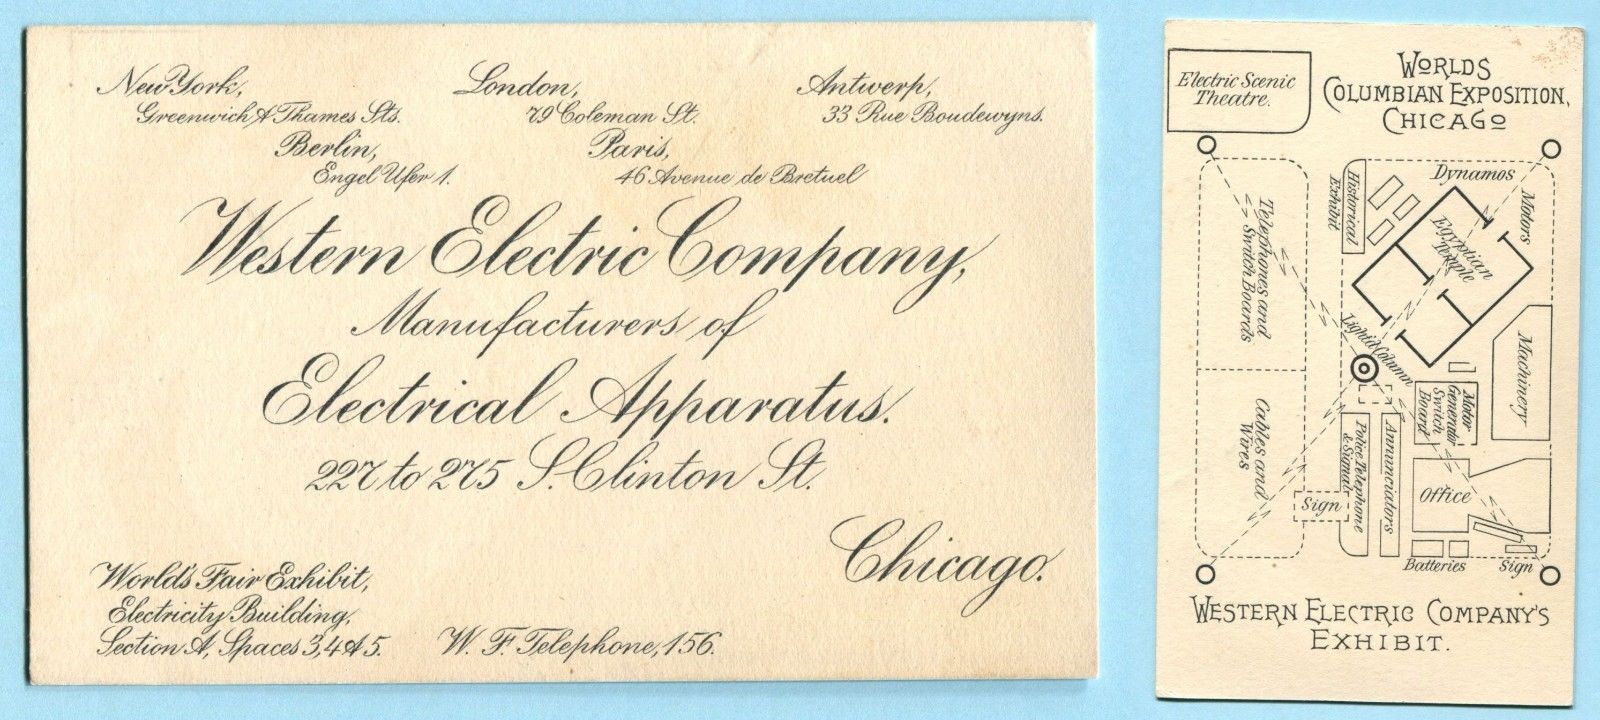 New York,
Greenwich & Thames Sts.
London,
79 Coleman St.
Antwerp,
33 Rue Boudewyns.
Berlin,
Engel Ufer 1.
Paris,
46 Avenue de Bretuel
Western Electric Company,
Manufacturers of
Electrical Apparatus.
227 to 275 S. Clinton St.
Chicago.
World's Fair Exhibit,
Electricity Building,
Section A, Spaces 3,4 & 5.
W. F. Telephone, 156.
Electric Scenic
Theatre.
WORLDS
COLUMBIAN EXPOSITION,
CHICAGO
Dynamos
Motors
Historical
Exhibit
Egyptian
Temple
Telephones and
Switch Boards
Light Column
Machinery
Motor
Generator
Switch
Board
Cables and
Wires
Police Telephone
& Signal
Annunciators
Office
Sign
Batteries
Sign
WESTERN ELECTRIC COMPANY'S
EXHIBIT.